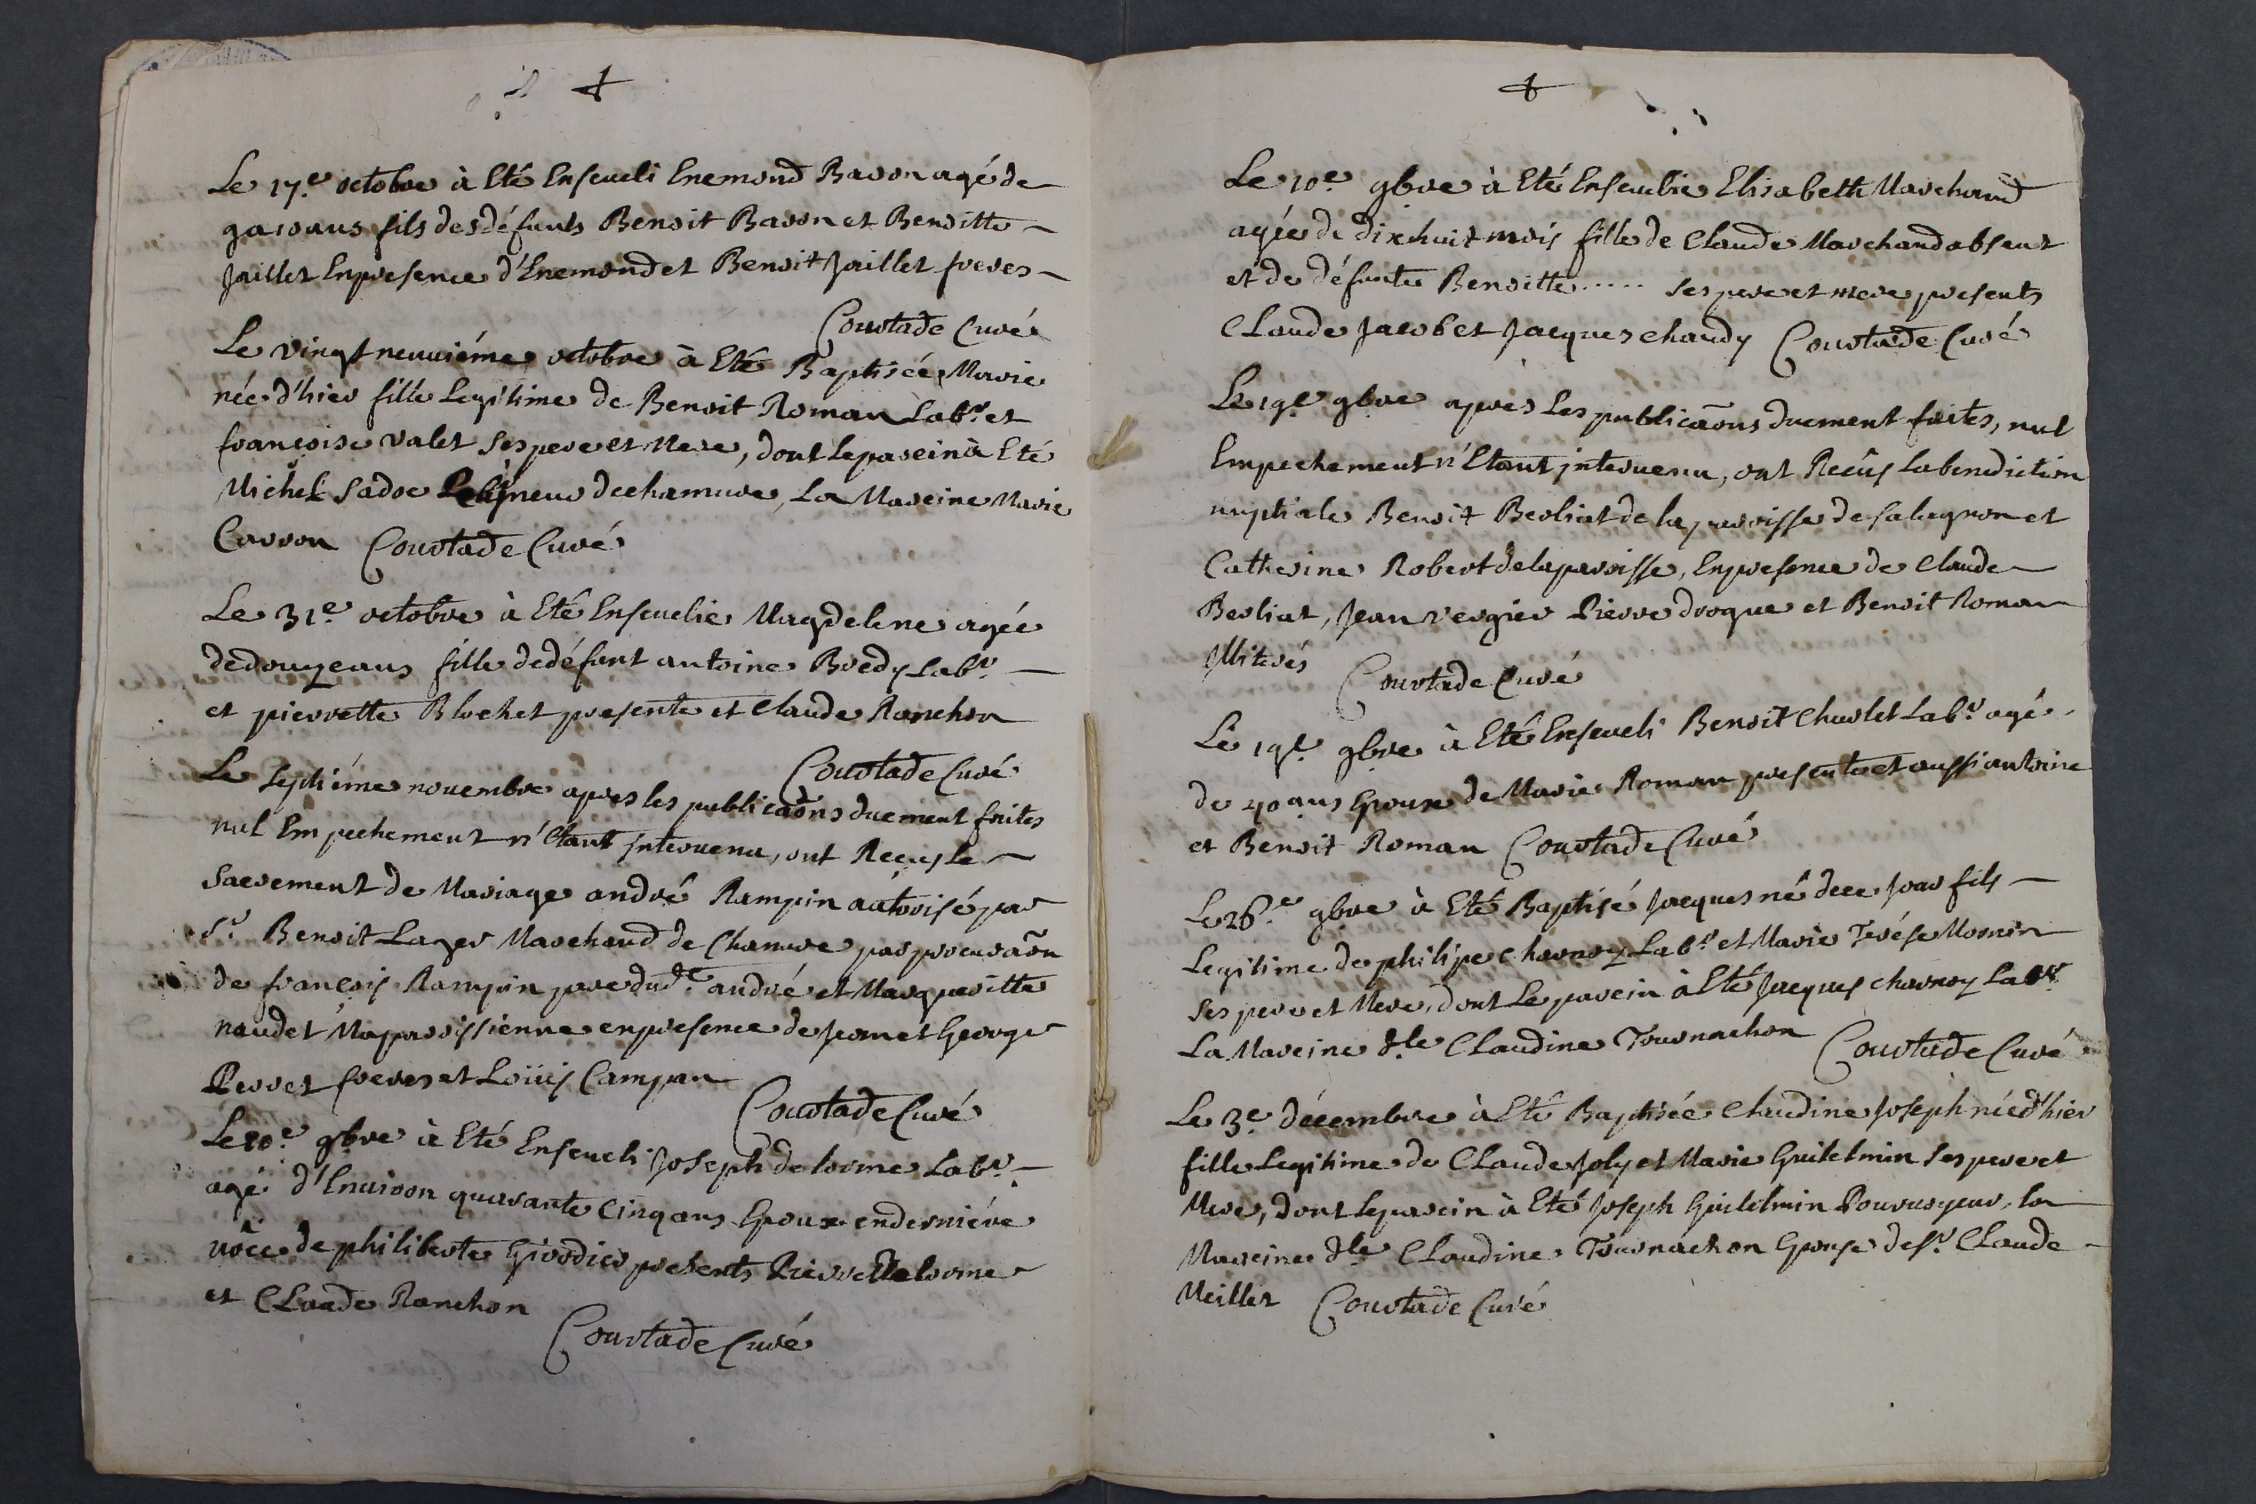 Le 17.e octobre à Eté Enseueli Enemond Baron agé de
ans fils des défunts Benoit Baron et Benoitte
Jaillet Enpresence d'Enemond et Benoit Jaillet freres
Courtade Curé
Le vingt neuuiéme octobre à Eté Baptisée Marie
née d'hier fille Legitime de Benoit Roman Labr. et
françoise valet Ses pere et Mere, dont le parein à Eté
Michel Sadoc Peigneur de chanure, La Mareine Marie
Carron Courtade Curé
Le 31.e octobre à Eté Enseuelie Magdelene agée
de douze ans fille de défunt antoine Bredy Labr.
et pierrette Blochet presente et Claude Ranchon
Courtade Curé
Le Septiéme nouembre apres les publicaõns duement faites
nul Empechement n'Etant interuenu, ont Reçus le
Sacrement de Mariage andré Rampin authorisé par
Sr. Benoit Lager Marchand de Chanure par procuraõn
de françois Rampin pere dudt. andré et Margueritte
naudet Maparoissienne enpresence de Jean et George
Perret freres et Loüis Campan
Courtade Curé
Le 10.e 9bre à Eté Enseueli Joseph delorme Labr.
agé d'Enuiron quarante Cinq ans Epoux en derniére
nôce de philiberte Girodier presents Pierre Delorme
et CLaude Ranchon
Courtade Curé
Le 10.e 9bre à Eté Enseuelie Elisabeth Marchand
agée de dixhuit mois fille de Claude Marchand absent
et de défunte Benoitte..... ses pere et mere presents
CLaude Jacob et Jacques chaudy Courtade Curé
Le 19.e 9bre apres Les publicaõns duement faites, nul
Empechement n'Etant interuenu, ont Reçûs la benediction
nuptiale Benoit Berliat de la paroisse de salagnon et
Catherine Robert de la paroisse, Enpresence de Claude
Berliat, Jean vergier Pierre drogue et Benoit Roman
Illiterés Courtade Curé
Le 19.e 9bre à Eté Enseueli Benoit Charlet Labr. agé
de 40 ans Epoux de Marie Roman presente et aussi antoine
et Benoit Roman Courtade Curé
Le 26.e 9bre à Eté Baptisé Jacques né de ce Jour fils
Legitime de philipe charnoz Labr. et Marie Terése Monnin
Ses pere et Mere, dont Le parein à Eté Jacques charnoz Labr.
La Mareine dle CLaudine Tournachon Courtade Curé
Le 3.e décembre à Eté Baptisée Claudine Joseph née d'hier
fille Legitime de CLaude Joly et Marie Guilelmin Ses pere et
Mere, dont le parein à Eté Joseph Guilelmin Pouruoyeur, la
Mareine dle CLaudine Tournachon Epouse de Sr. CLaude
Meiller Courtade Curé